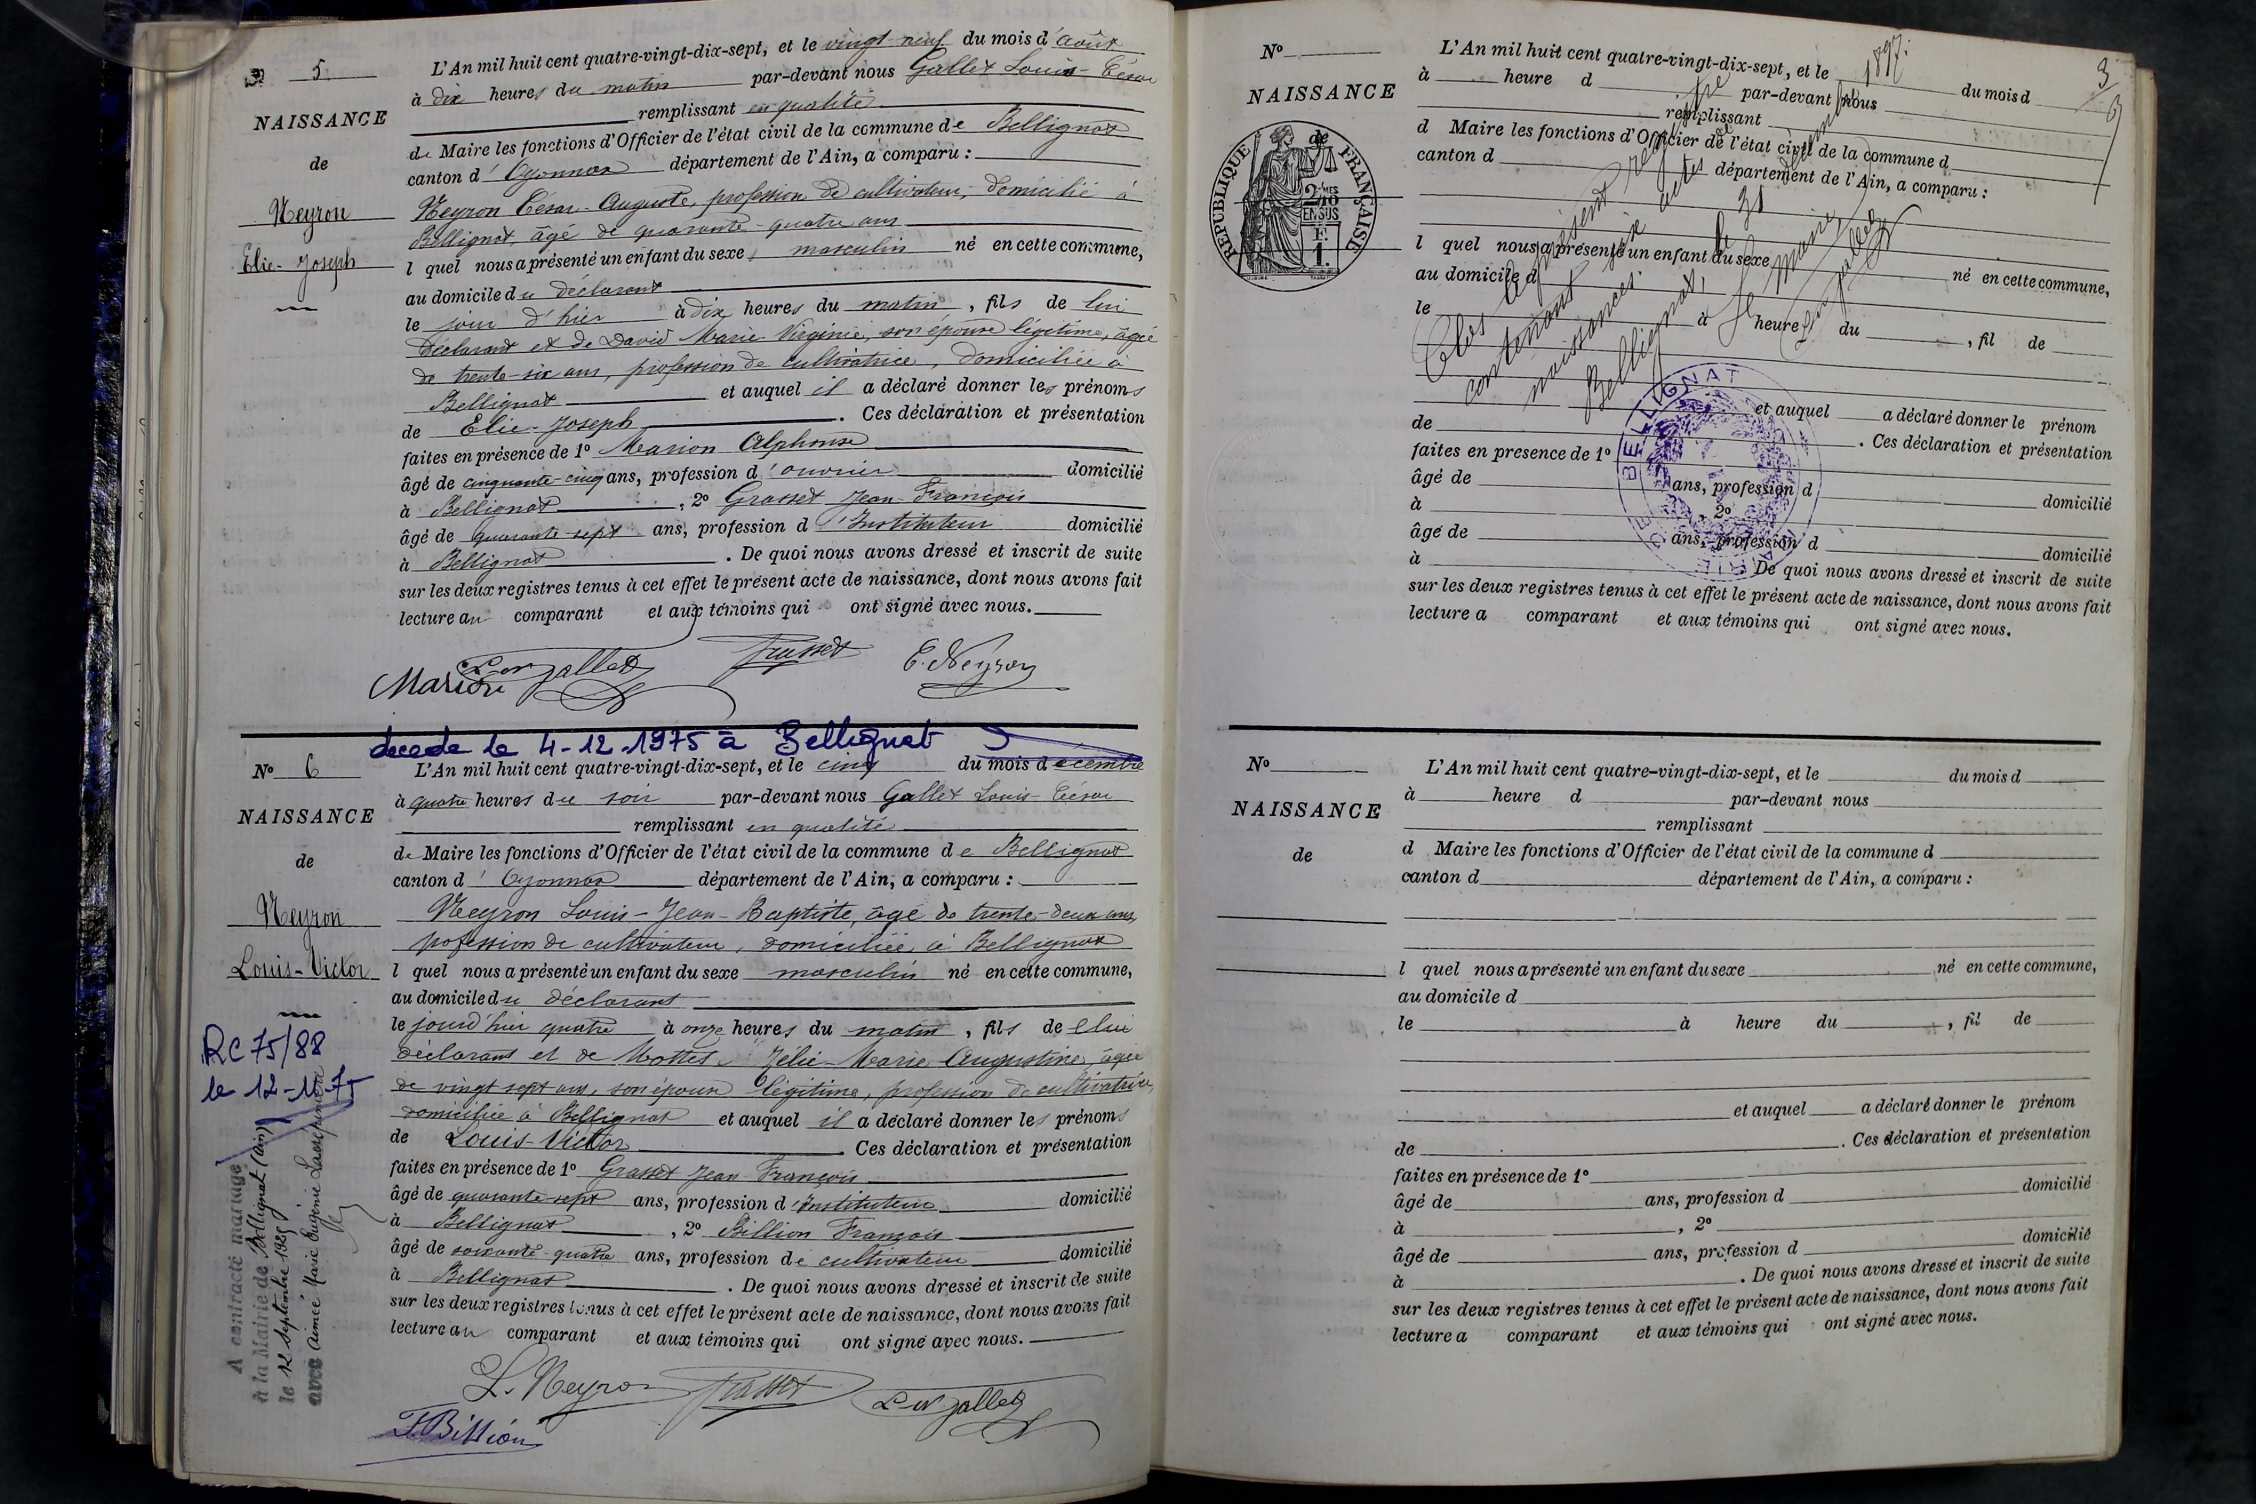 N° 5
NAISSANCE
de
Neyron
Elie-Joseph
L'An mil huit cent quatre-vingt-dix-sept, et le vingt neuf du mois d'août
à dix heures du matin par-devant nous Gallet Louis-César
remplissant en qualité
de Maire les fonctions d'Officier de l'état civil de la commune de Bellignat
canton d'Oyonnax département de l'Ain, a comparu :
Neyron César-Auguste, profession de cultivateur, domicilié à
Bellignat, âgé de quarante-quatre ans
l quel nous a présenté un enfant du sexe masculin né en cette commune,
au domicile du déclarant
le jour d'hier à dix heures du matin, fils de lui
déclarant et de David Marie Virginie, son épouse légitime, âgée
de trente-six ans, profession de cultivatrice, domiciliée à
Bellignat et auquel il a déclaré donner les prénoms
de Elie-Joseph. Ces déclaration et présentation
faites en présence de 1° Marion Alphonse
âgé de cinquante-cinq ans, profession d'ouvrier domicilié
à Bellignat, 2° Grasset Jean-François
âgé de quarante-sept ans, profession d'Instituteur domicilié
à Bellignat. De quoi nous avons dressé et inscrit de suite
sur les deux registres tenus à cet effet le présent acte de naissance, dont nous avons fait
lecture au comparant et aux témoins qui ont signé avec nous.
Marion Gallet Grasset C. Neyron
décédé le 4-12-1975 à Bellignat
N° 6
NAISSANCE
de
Neyron
Louis-Victor
RC 75/88
A contracté mariage
à la Mairie de Bellignat (Ain)
le 12 septembre 1925
avec Aimée Marie Eugénie
L'An mil huit cent quatre-vingt-dix-sept, et le cinq du mois décembre
à quatre heures du soir par-devant nous Gallet Louis-César
remplissant en qualité
de Maire les fonctions d'Officier de l'état civil de la commune de Bellignat
canton d'Oyonnax département de l'Ain, a comparu :
Neyron Louis-Jean-Baptiste, âgé de trente-deux ans,
profession de cultivateur, domiciliée à Bellignat
l quel nous a présenté un enfant du sexe masculin né en cette commune,
au domicile du déclarant
le jourd'hier quatre à onze heures du matin, fils de lui
déclarant et de Mottet Zélie-Marie Augustine, âgée
de vingt sept ans, son épouse légitime, profession de cultivatrice,
domiciliée à Bellignat et auquel il a déclaré donner les prénoms
de Louis-Victor Ces déclaration et présentation
faites en présence de 1° Grasset Jean François
âgé de quarante-sept ans, profession d'Instituteur domicilié
à Bellignat, 2° Billion François
âgé de soixante-quatre ans, profession de cultivateur domicilié
à Bellignat. De quoi nous avons dressé et inscrit de suite
sur les deux registres tenus à cet effet le présent acte de naissance, dont nous avons fait
lecture au comparant et aux témoins qui ont signé avec nous.
L. Neyron Grasset Gallet
F. Billion
N°
NAISSANCE
RÉPUBLIQUE FRANÇAISE
2/10 EN SUS
F.
1.
de
L'An mil huit cent quatre-vingt-dix-sept, et le du mois d
à heure d par-devant nous
remplissant
d Maire les fonctions d'Officier de l'état civil de la commune d
canton d département de l'Ain, a comparu :
l quel nous a présenté un enfant du sexe né en cette commune,
au domicile d
le à heure du , fil de
et auquel a déclaré donner le prénom
de . Ces déclaration et présentation
faites en présence de 1°
âgé de ans, profession d domicilié
à , 2°
âgé de ans, profession d domicilié
à De quoi nous avons dressé et inscrit de suite
sur les deux registres tenus à cet effet le présent acte de naissance, dont nous avons fait
lecture a comparant et aux témoins qui ont signé avec nous.
Clos le présent registre
contenant six actes de
naissances.
Bellignat, le 31 décembre 1897.
Le Maire,
Gallet
MAIRIE DE BELLIGNAT
3
N°
NAISSANCE
de
L'An mil huit cent quatre-vingt-dix-sept, et le du mois d
à heure d par-devant nous
remplissant
d Maire les fonctions d'Officier de l'état civil de la commune d
canton d département de l'Ain, a comparu :
l quel nous a présenté un enfant du sexe né en cette commune,
au domicile d
le à heure du , fil de
et auquel a déclaré donner le prénom
de . Ces déclaration et présentation
faites en présence de 1°
âgé de ans, profession d domicilié
à , 2°
âgé de ans, profession d domicilié
à . De quoi nous avons dressé et inscrit de suite
sur les deux registres tenus à cet effet le présent acte de naissance, dont nous avons fait
lecture a comparant et aux témoins qui ont signé avec nous.